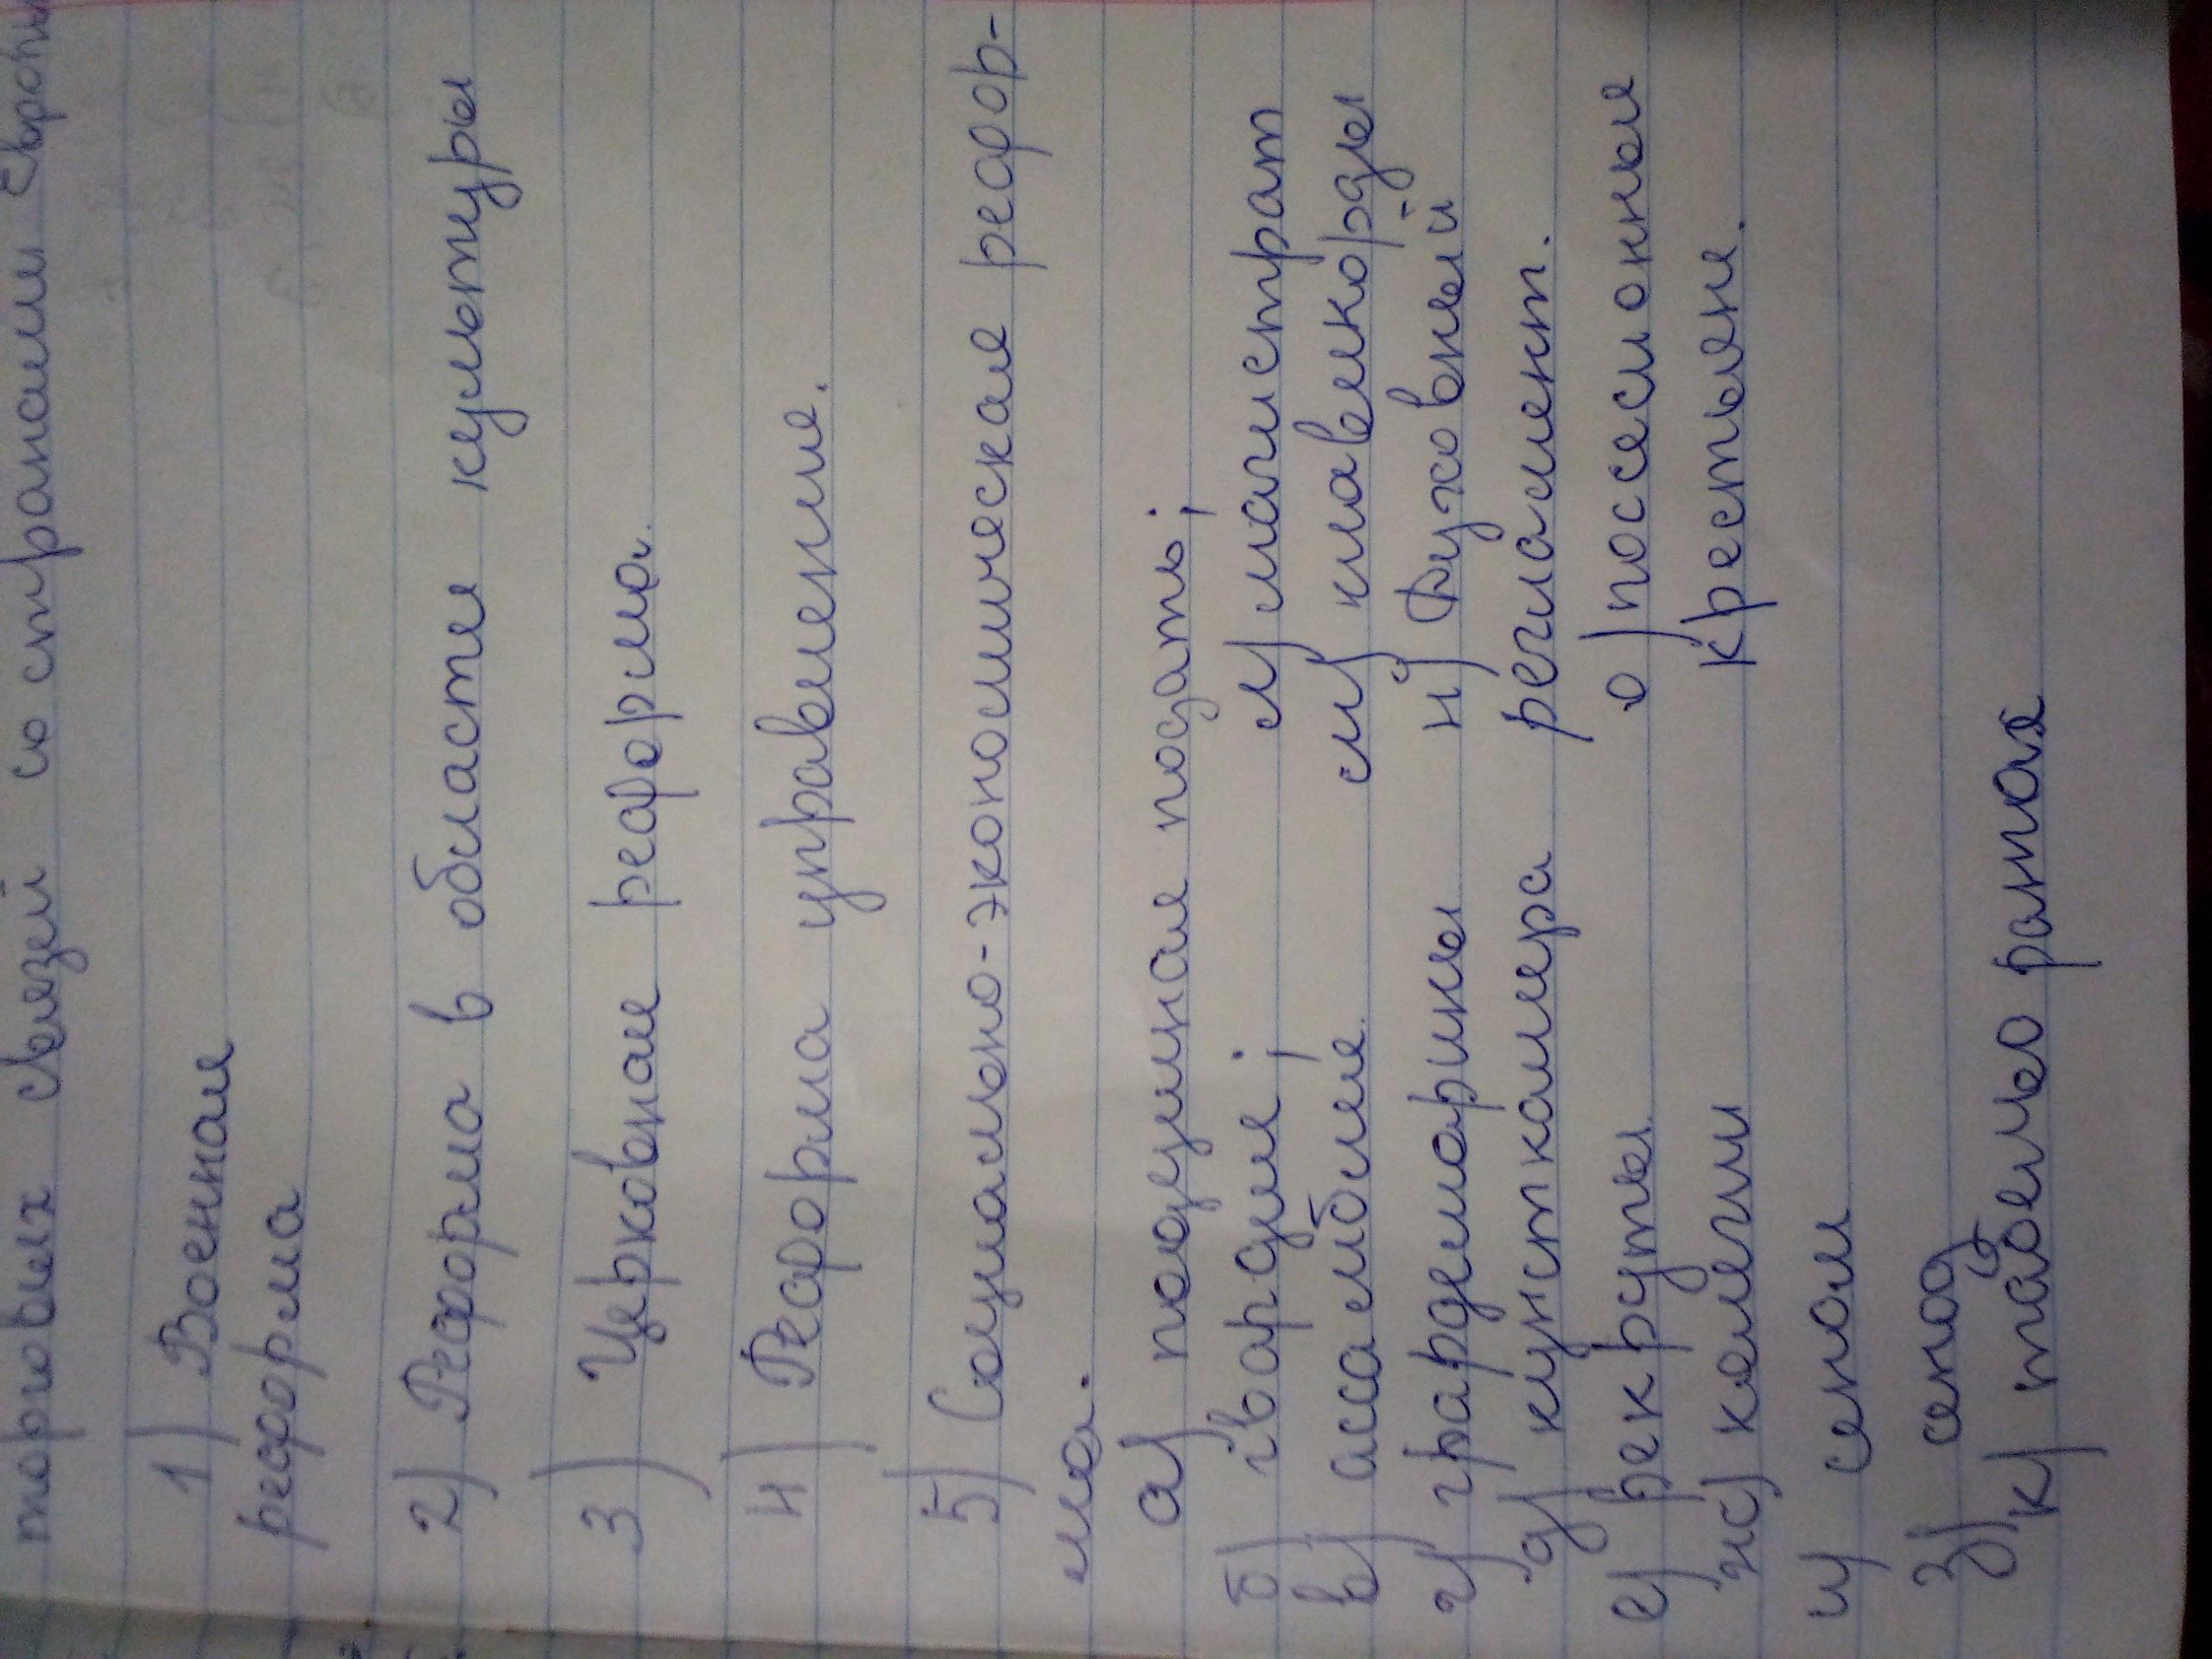 торговых связей со странами Европы
1) Военная
реформа
2) Реформа в области культуры
3) Церковная реформа.
4) Реформа управление.
5) Социально-экономическая рефор-
ма.
а) подушная подать;
б) гвардия;
в) ассамблея
г) гардемарины
д) кунсткамера
е) рекруты
ж) колегии
и) сенат
з) сенод
к) табель о рангах
л) магистрат
м) клавикорды
н) Духовный
регламент.
о) посесионные
крестьяне.